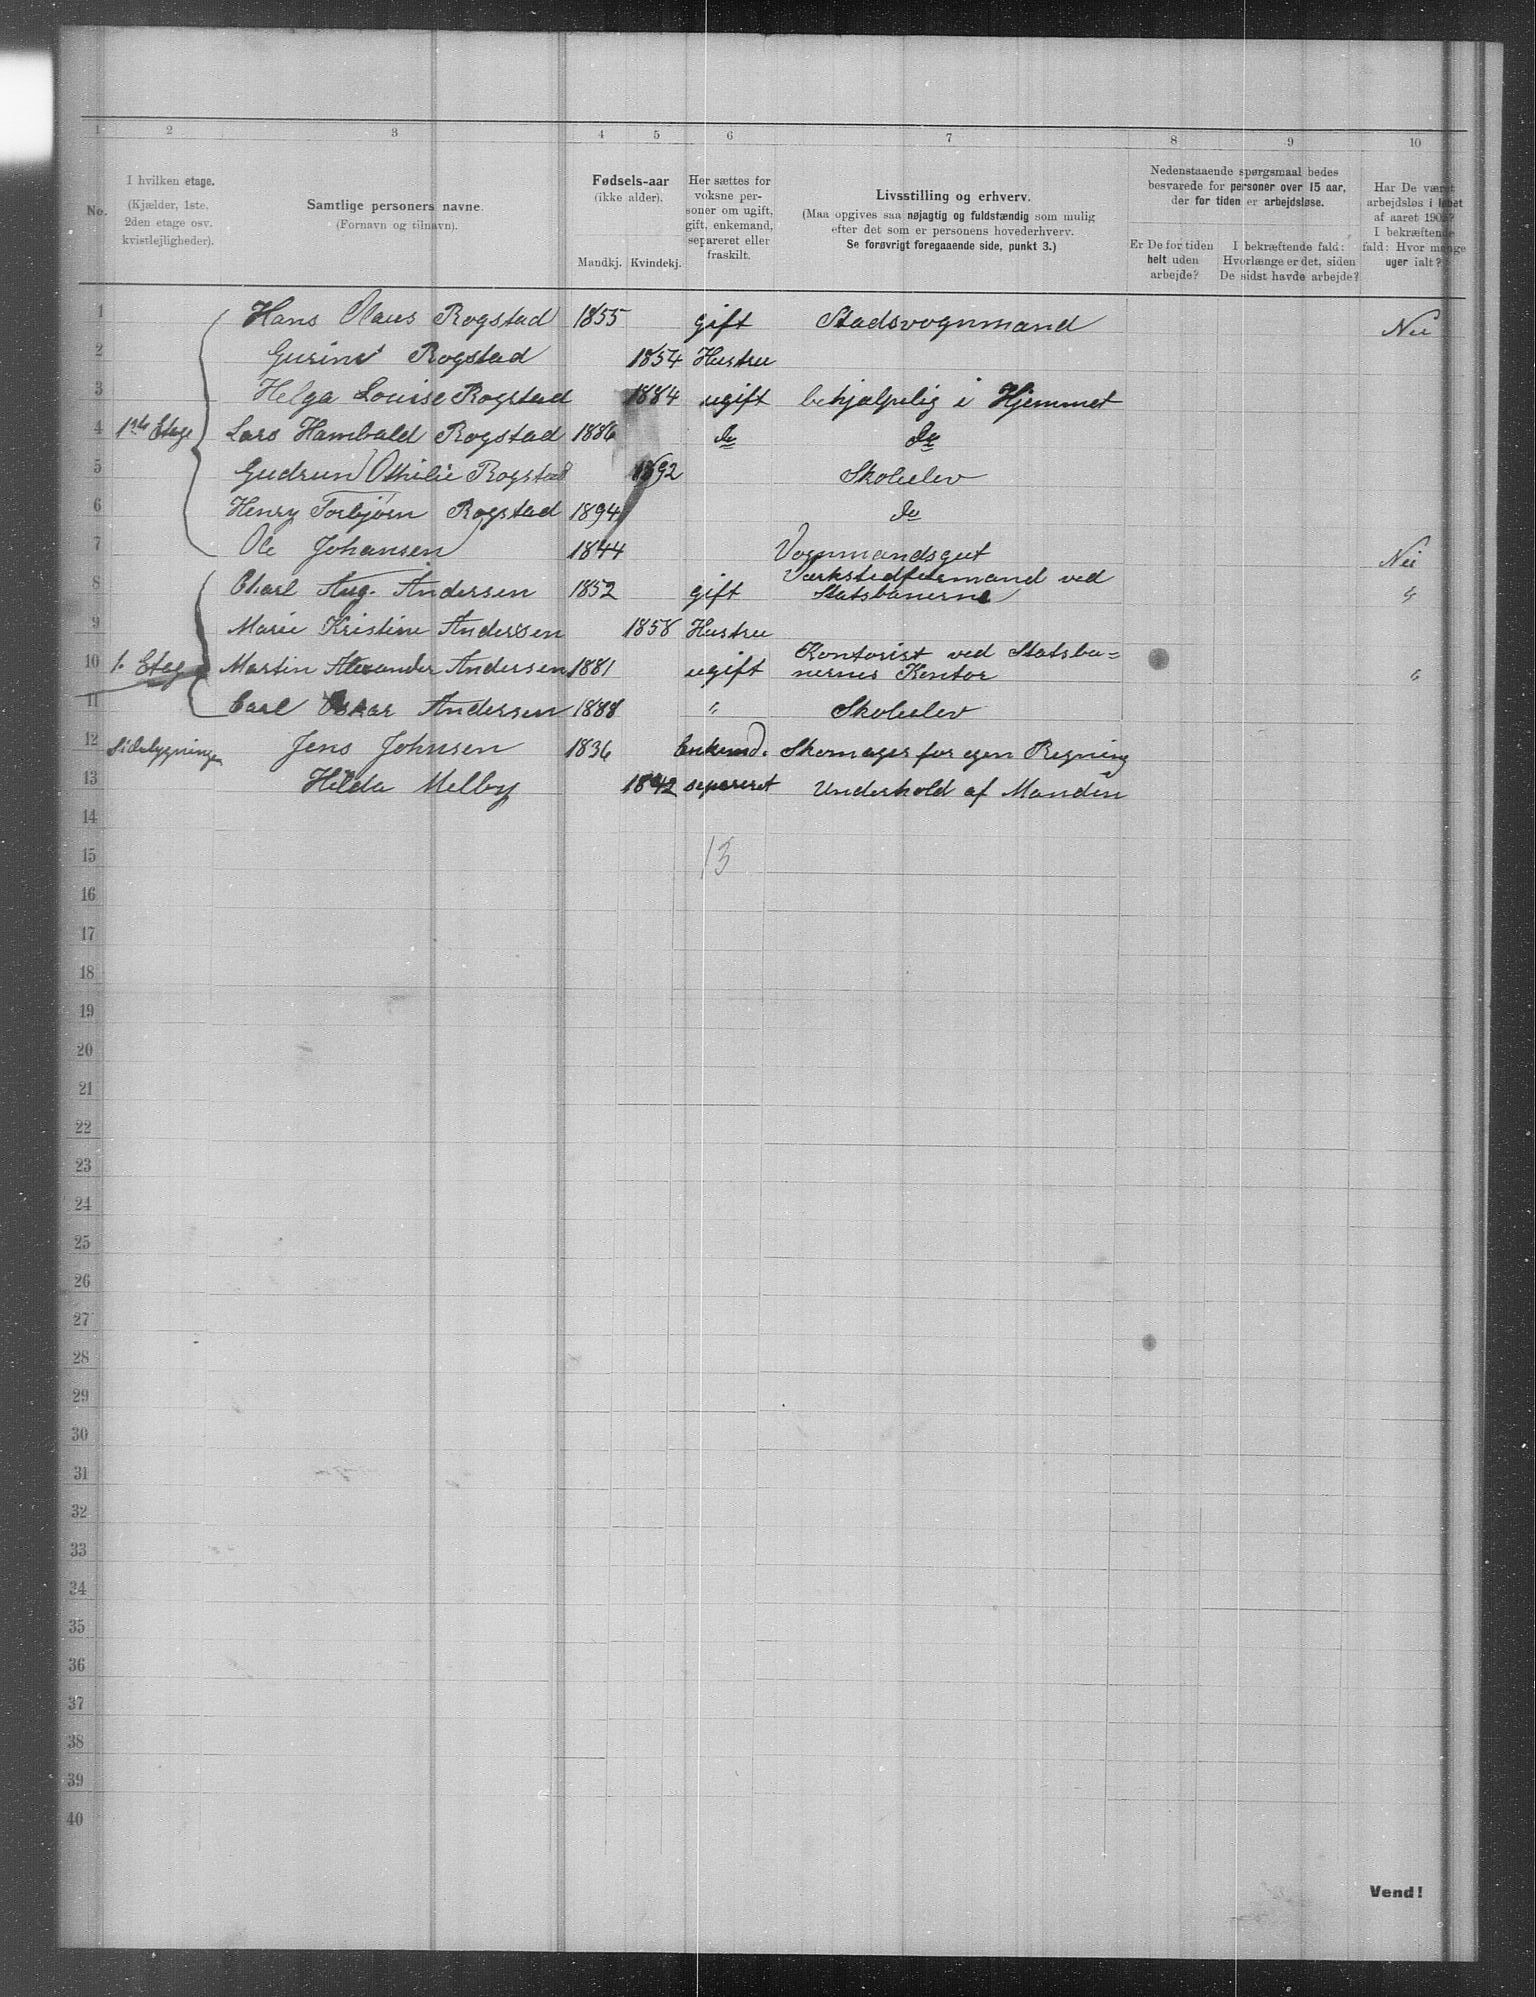 1 2 3 4 5 6 7 8 9 10
No.
I hvilken etage.
(Kjælder, 1ste,
2den etage osv.
kvistlejligheder).
Samtlige personers navne.
(Fornavn og tilnavn).
Fødsels-aar
(ikke alder).
Mandkj. Kvindekj.
Her sættes for
voksne per-
soner om ugift,
gift, enkemand,
separeret eller
fraskilt.
Livsstilling og erhverv.
(Maa opgives saa nøjagtig og fuldstændig som mulig
efter det som er personens hovederhverv.
Se forøvrigt foregaaende side, punkt 3.)
Nedenstaaende spørgsmaal bedes
besvarede for personer over 15 aar,
der for tiden er arbejdsløse.
Er De for tiden
helt uden
arbejde?
I bekræftende fald:
Hvorlænge er det, siden
De sidst havde arbejde?
Har De været
arbejdsløs i løbet
af aaret 1902?
I bekræftende
fald: Hvor mange
uger ialt?
1 Hans Olaus Rogstad 1855 gift Stadsvognmand Nei
2 Gurine Rogstad 1854 Hustru
3 Helga Louise Rogstad 1884 ugift behjælpelig i Hjemmet
4 1ste Etage Lars Hambald Rogstad 1886 do do
5 Gudrun Othilie Rogstad 1892 Skoleelev
6 Henry Torbjørn Rogstad 1894 do
7 Ole Johansen 1844 Vognmandsgut Nei
8 Charl Aug. Andersen 1852 gift Værkstedformand ved
Statsbanerne "
9 Marie Kristine Andersen 1858 Hustru
10 1. Etag Martin Alexander Andersen 1881 ugift Kontorist ved Statsba=
nernes Kontor "
11 Carl Oskar Andersen 1888 " Skoleelev
12 Sidebygningen Jens Johnsen 1836 Enkemd. Skomager for egen Regning
13 Hilda Melby 1842 separeret Underhold af Manden
14
15 13
16
17
18
19
20
21
22
23
24
25
26
27
28
29
30
31
32
33
34
35
36
37
38
39
40
Vend!